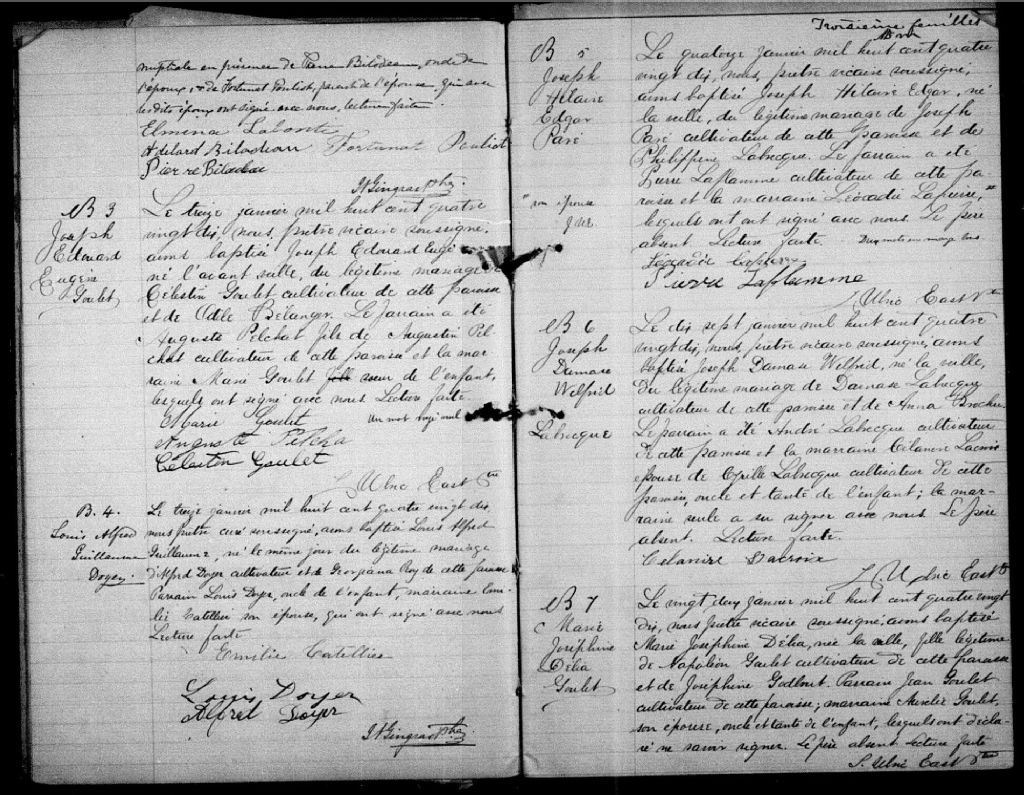 nuptiale en présence de Pierre Bilodeau, oncle de
l'époux, et de Fortunat Pouliot, parent de l'épouse, qui avec
lesdits époux ont signé avec nous, lecture faite.
Elmina Labonté
Adélard Bilodeau Fortunat Pouliot
Pierre Bilodeau
N Gingras Ptre
B 3
Joseph
Edouard
Eugène
Goulet
Le treize janvier mil huit cent quatre
vingt dix, nous, prêtre vicaire soussigné,
avons baptisé Joseph Edouard Eugè
né l'avant veille, du légitime mariage de
Célestin Goulet cultivateur de cette paroisse
et de Odile Bélanger. Le parrain a été
Auguste Pelchat fils de Augustin Pel
chat cultivateur de cette paroisse et la mar
raine Marie Goulet soeur de l'enfant,
lesquels ont signé avec nous Lecture faite.
Marie Goulet Un mot rayé nul
Auguste Pelcha
Célestin Goulet
Ulric East
B. 4.
Louis Alfred
Guillaume
Doyer.
Le treize janvier mil huit cent quatre vingt dix
nous prêtre curé soussigné, avons baptisé Louis Alfred
Guillaume, né le même jour du légitime mariage
d'Alfred Doyer cultivateur et de Georgiana Roy de cette paroisse
Parrain Louis Doyer, oncle de l'enfant, marraine Emi-
lie Catellier son épouse, qui ont signé avec nous
Lecture faite
Emilie Catellier
Louis Doyer
Alfred Doyer
N Gingras Ptre
Troisième feuillet
B 5
Joseph
Hilaire
Edgar
Paré
" son épouse
Le quatorze janvier mil huit cent quatre
vingt dix, nous, prêtre vicaire soussigné,
avons baptisé Joseph Hilaire Edgar, né
la veille, du légitime mariage de Joseph
Paré cultivateur de cette paroisse et de
Philippine Labrecque. Le parrain a été
Pierre Laflamme cultivateur de cette pa
roisse et la marraine Léocadie Lapierre, "
lesquels ont signé avec nous. Le père
absent. Lecture faite. Deux mots en marge bons
Léocadie Lapierre
Pierre Laflamme
Ulric East
B 6
Joseph
Damase
Wilfrid
Labrecque
Le dix sept janvier mil huit cent quatre
vingt dix, nous, prêtre vicaire soussigné, avons
baptisé Joseph Damase Wilfrid, né la veille,
du légitime mariage de Damase Labrecque
cultivateur de cette paroisse et de Anna Brochu.
Le parrain a été André Labrecque cultivateur
de cette paroisse et la marraine Célanire Lacroix
épouse de Cyrille Labrecque cultivateur de cette
paroisse, oncle et tante de l'enfant; la mar-
raine seule a su signer avec nous. Le père
absent. Lecture faite.
Célanire Lacroix
Ulric East
B 7
Marie
Joséphine
Délia
Goulet
Le vingt deux janvier mil huit cent quatre vingt
dix, nous prêtre vicaire soussigné, avons baptisé
Marie Joséphine Délia, née la veille, fille légitime
de Napoléon Goulet cultivateur de cette paroisse
et de Joséphine Godbout. Parrain Jean Goulet
cultivateur de cette paroisse; marraine Aurélie Goulet,
son épouse, oncle et tante de l'enfant, lesquels ont décla-
ré ne savoir signer. Le père absent Lecture faite
S. Ulric East